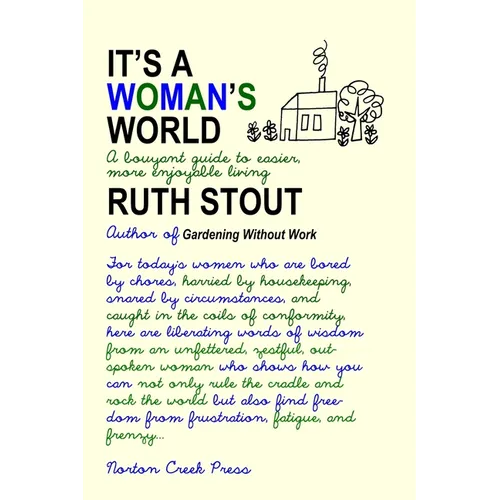 IT'S A
WOMAN'S
WORLD
A bouyant guide to easier,
more enjoyable living
RUTH STOUT
Author of Gardening Without Work
For today's women who are bored
by chores, harried by housekeeping,
snared by circumstances, and
caught in the coils of conformity,
here are liberating words of wisdom
from an unfettered, zestful, out-
spoken woman who shows how you
can not only rule the cradle and
rock the world but also find free-
dom from frustration, fatigue, and
frenzy...
Norton Creek Press